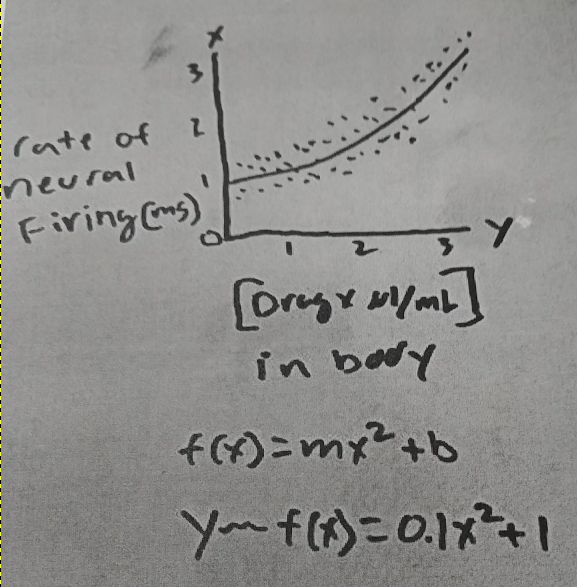 X
3
2
rate of
neural
1
Firing (ms)
0
Y
1 2 3
[Drug x /mL]
in body
f(x)=mx²+b
Y~f(x)=0.1x²+1